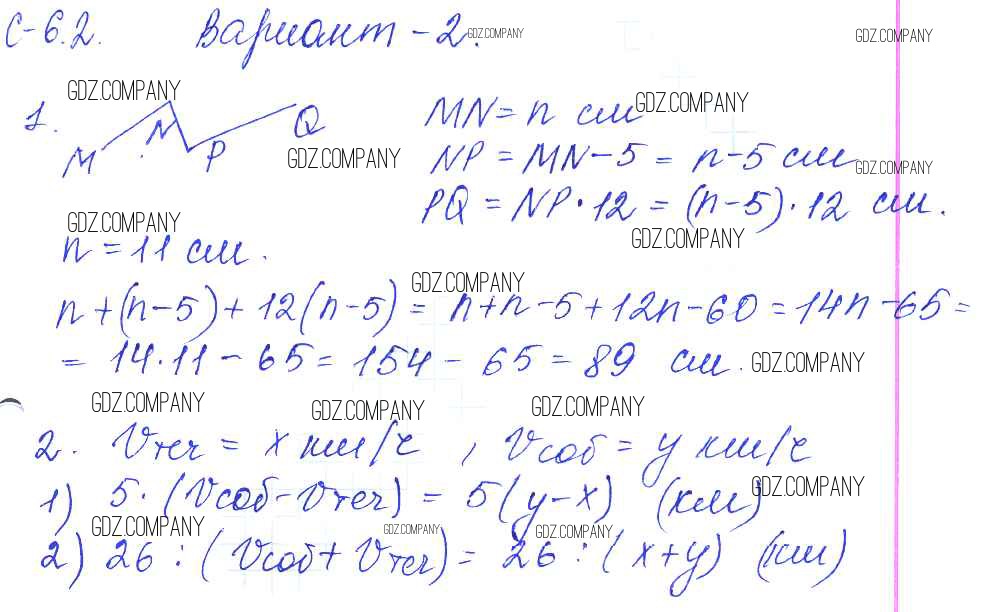 С-6.2. Вариант - 2. GDZ.COMPANY GDZ.COMPANY
GDZ.COMPANY
1. M N P Q
MN = n см GDZ.COMPANY
GDZ.COMPANY NP = MN - 5 = n - 5 см GDZ.COMPANY
PQ = NP · 12 = (n - 5) · 12 см.
GDZ.COMPANY GDZ.COMPANY
n = 11 см.
GDZ.COMPANY
n + (n - 5) + 12(n - 5) = n + n - 5 + 12n - 60 = 14n - 65 =
= 14 · 11 - 65 = 154 - 65 = 89 см. GDZ.COMPANY
GDZ.COMPANY GDZ.COMPANY GDZ.COMPANY
2. Vтеч = x км/ч , Vсоб = y км/ч
1) 5 · (Vсоб - Vтеч) = 5(y - x) (км) GDZ.COMPANY
GDZ.COMPANY GDZ.COMPANY GDZ.COMPANY
2) 26 : (Vсоб + Vтеч) = 26 : (x + y) (км)